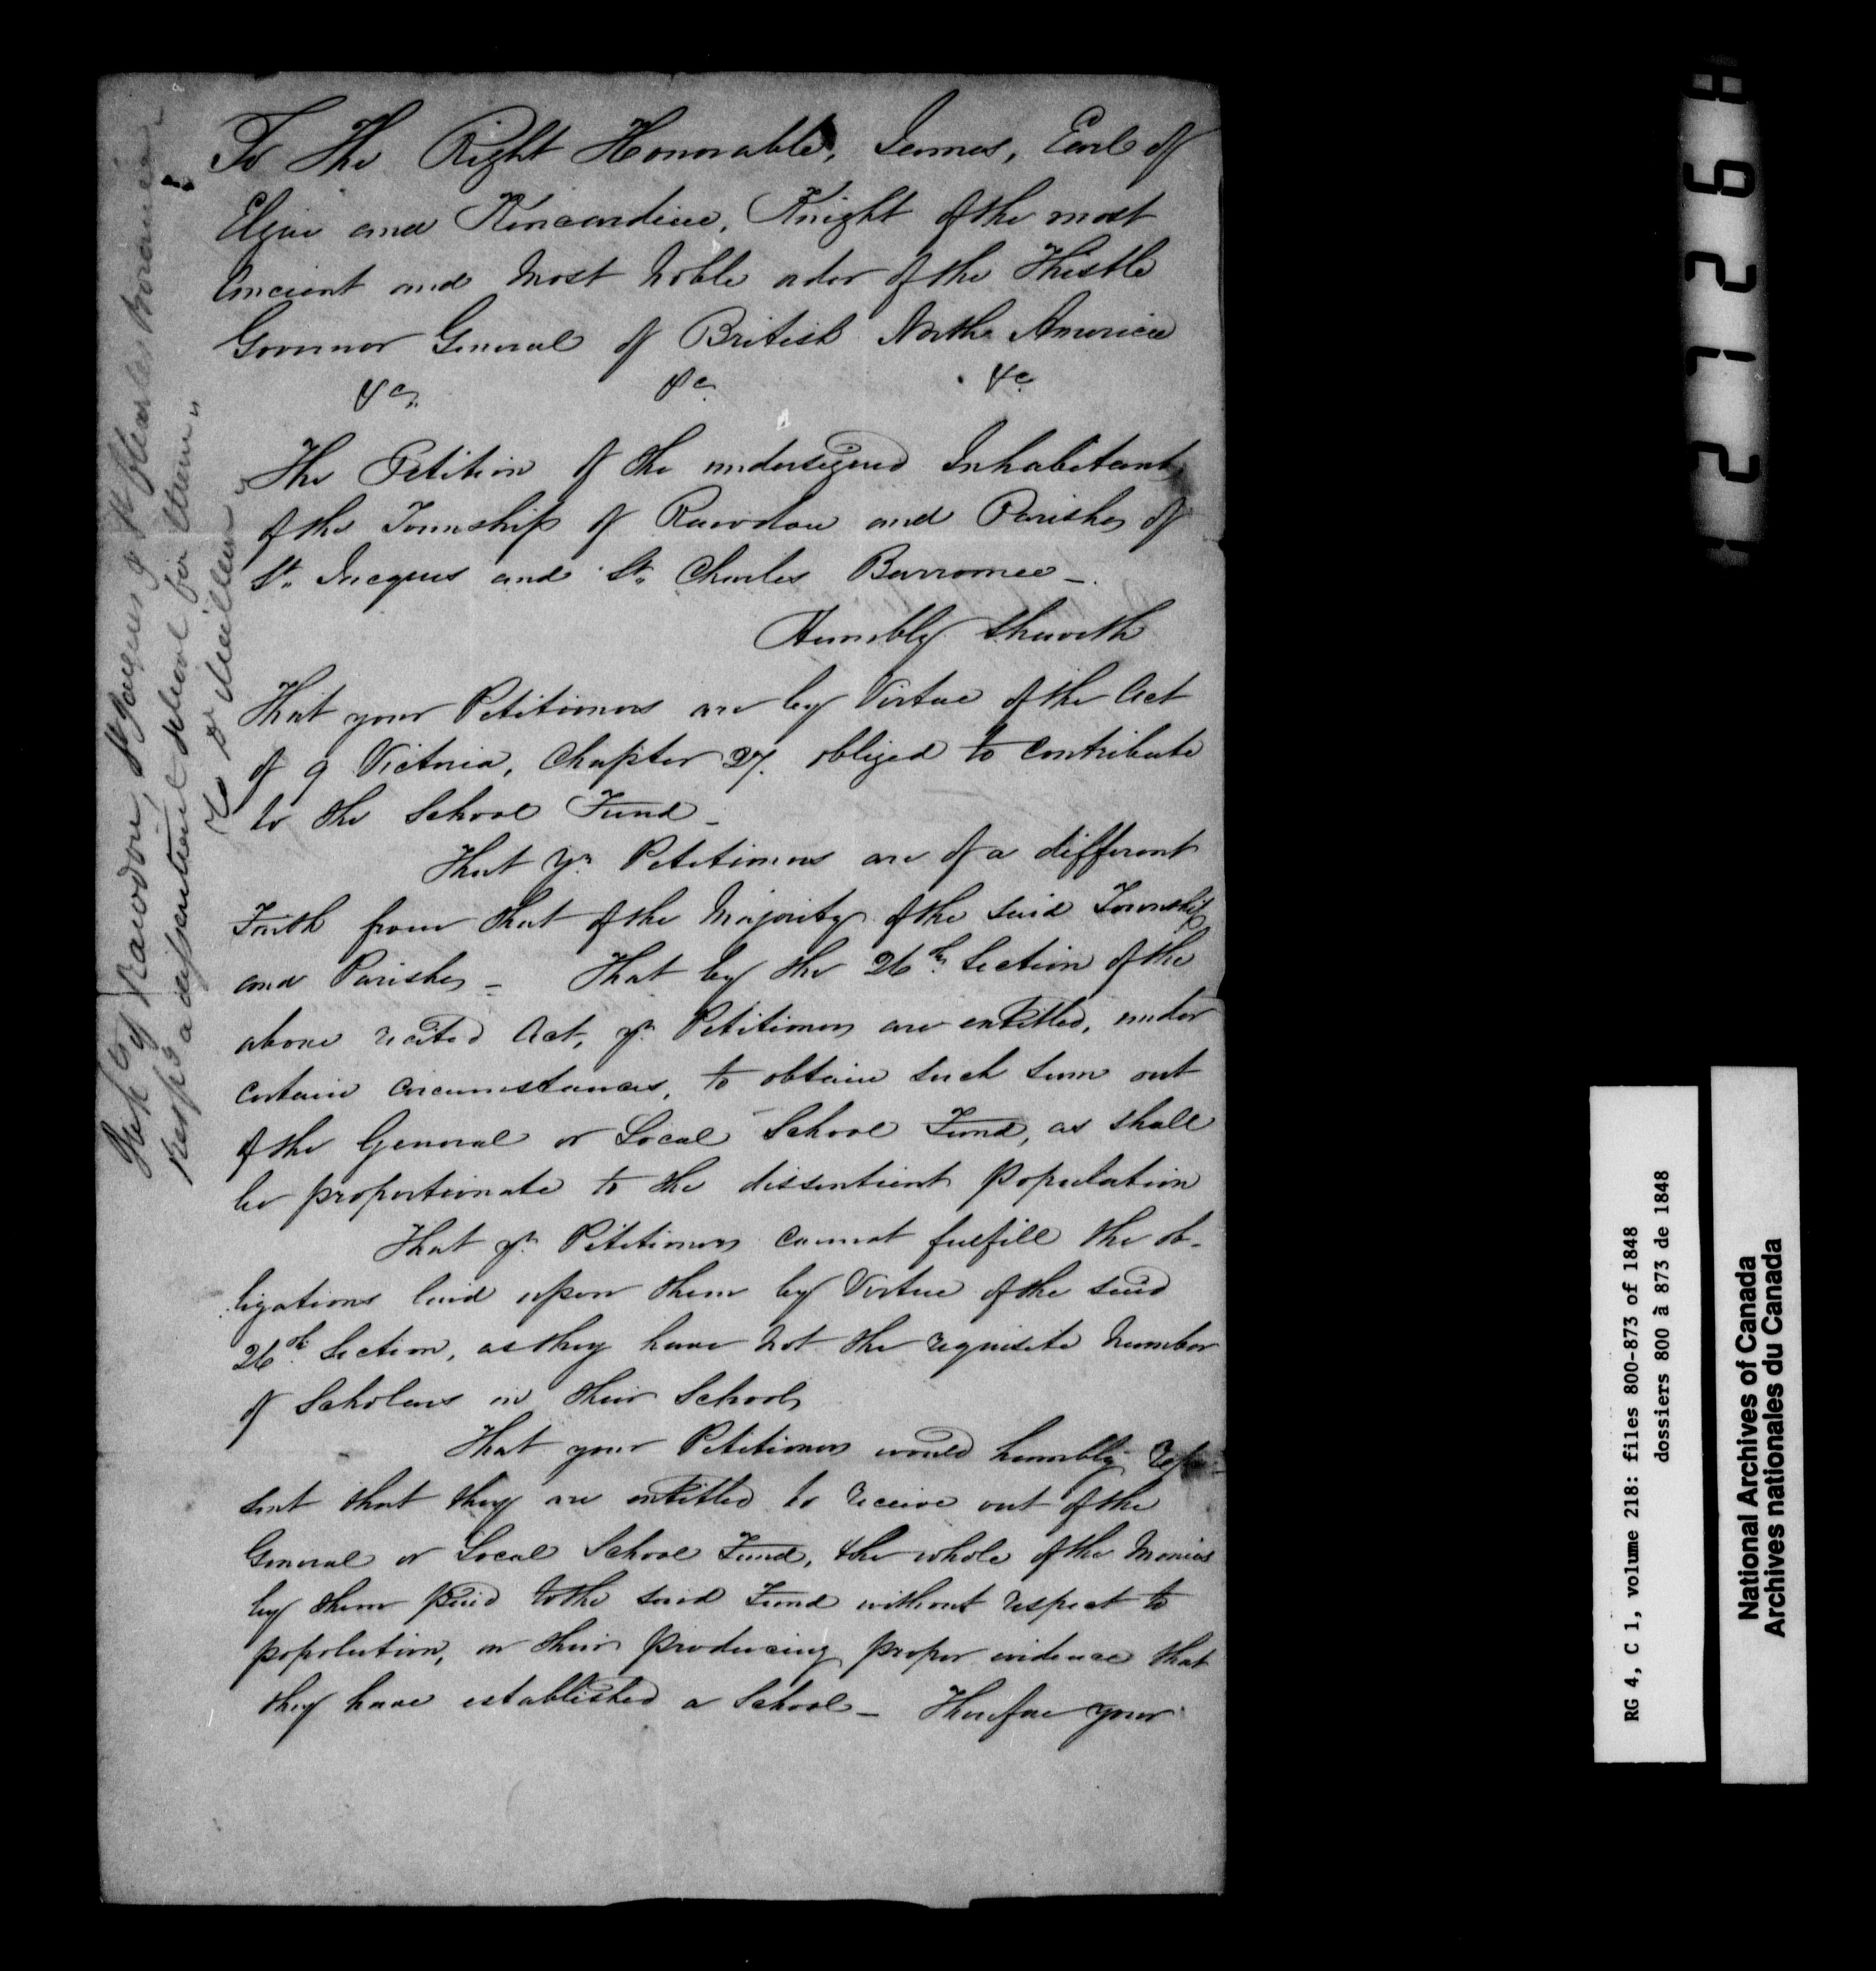 To The Right Honorable, James, Earl of
Elgin and Kincardine, Knight of the most
Ancient and Most Noble order of the Thistle
Governor General of British North America
&c. &c. &c.
The Petition of the undersigned Inhabitants
of the Township of Rawdon and Parishes of
St. Jacques and St. Charles Barromee_.
Humbly Sheweth
That your Petitioners are by Virtue of the Act
of 9 Victoria, Chapter 27. obliged to contribute
to the School Fund_
That yr. Petitioners are of a different
Faith from that of the Majority of the said Township
and Parishes_ That by the 26th. Section of the
above recited Act, yr. Petitioners are entitled, under
certain circumstances, to obtain such sum out
of the General or Local School Fund, as shall
be proportionate to the dissentient population
That yr. Petitioners cannot fulfill the ob-
ligations laid upon them by Virtue of the said
26th. Section, as they have not the requisite Number
of Scholars in their Schools
That your Petitioners would humbly Repre-
sent that they are entitled to receive out of the
General or Local School Fund, the whole of the Monies
by them paid to the said Fund without respect to
popolation, on their producing proper evidence that
they have established a School_ Therefore your
of Rawdon, St Jacques & St Charles Boromée_
Resp'g a dissentient School for them"
To Dr Meilleur
2 7 2 6
RG 4, C 1, volume 218: files 800-873 of 1848
dossiers 800 à 873 de 1848
National Archives of Canada
Archives nationales du Canada